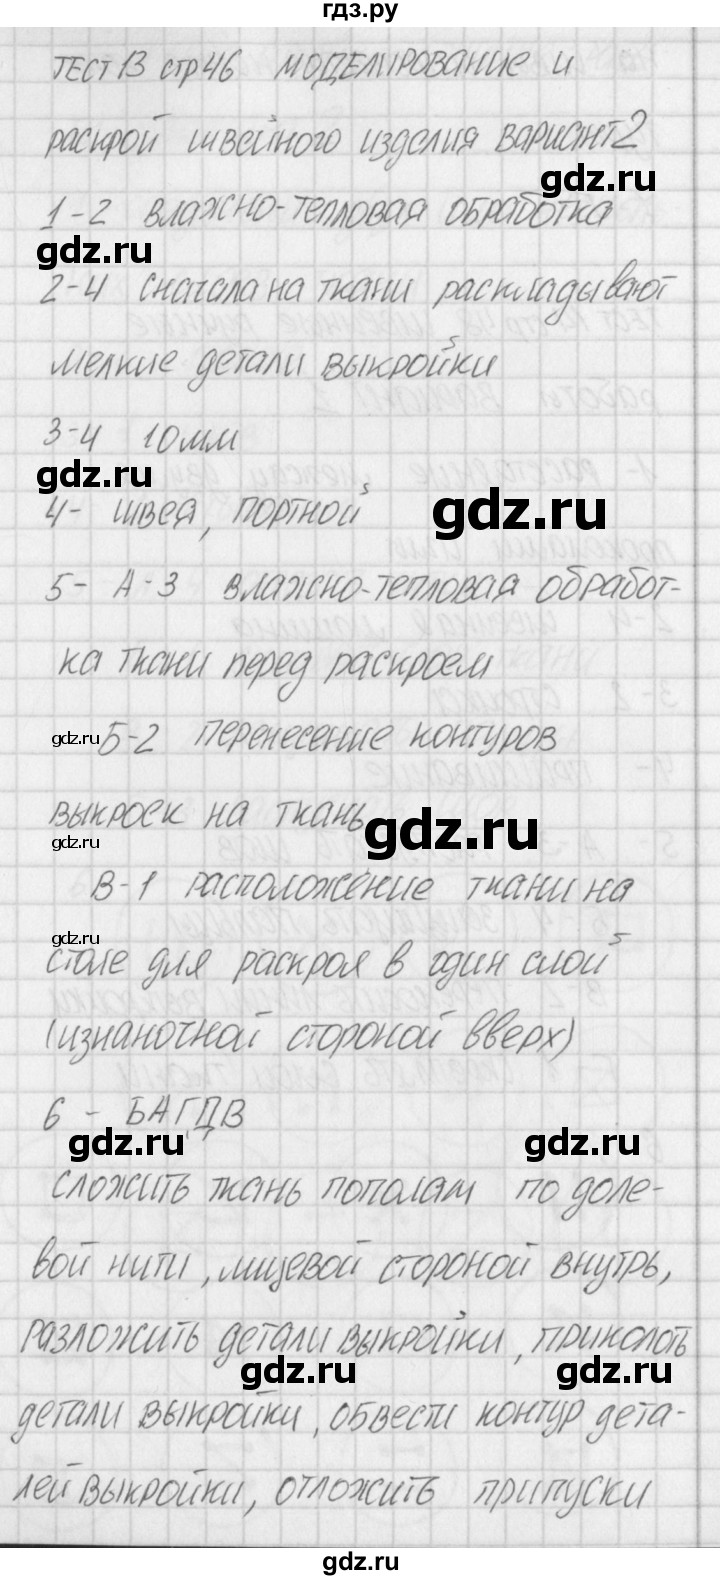 гдз.ру
ТЕСТ 13 стр 46 МОДЕЛИРОВАНИЕ И
РАСКРОЙ ШВЕЙНОГО ИЗДЕЛИЯ ВАРИАНТ 2
gdz.ru
1-2 ВЛАЖНО-ТЕПЛОВАЯ ОБРАБОТКА
gdz.ru
2-4 СНАЧАЛА НА ТКАНИ РАСКЛАДЫВАЮТ
МЕЛКИЕ ДЕТАЛИ ВЫКРОЙКИ
3-4 10 мм
gdz.ru
4- ШВЕЯ, ПОРТНОЙ
gdz.ru
5- А-3 ВЛАЖНО-ТЕПЛОВАЯ ОБРАБОТ-
КА ТКАНИ ПЕРЕД РАСКРОЕМ
gdz.ru
Б-2 ПЕРЕНЕСЕНИЕ КОНТУРОВ
ВЫКРОЕК НА ТКАНЬ
gdz.ru
gdz.ru
В-1 РАСПОЛОЖЕНИЕ ТКАНИ НА
gdz.ru
СТОЛЕ ДЛЯ РАСКРОЯ В ОДИН СЛОЙ
(ИЗНАНОЧНОЙ СТОРОНОЙ ВВЕРХ)
6 - БАГДВ
gdz.ru
gdz.ru
СЛОЖИТЬ ТКАНЬ ПОПОЛАМ ПО ДОЛЕ-
ВОЙ НИТИ, ЛИЦЕВОЙ СТОРОНОЙ ВНУТРЬ,
РАЗЛОЖИТЬ ДЕТАЛИ ВЫКРОЙКИ, ПРИКОЛОТЬ
gdz.ru
gdz.ru
ДЕТАЛИ ВЫКРОЙКИ, ОБВЕСТИ КОНТУР ДЕТА-
ЛЕЙ ВЫКРОЙКИ, ОТЛОЖИТЬ ПРИПУСКИ
gdz.ru